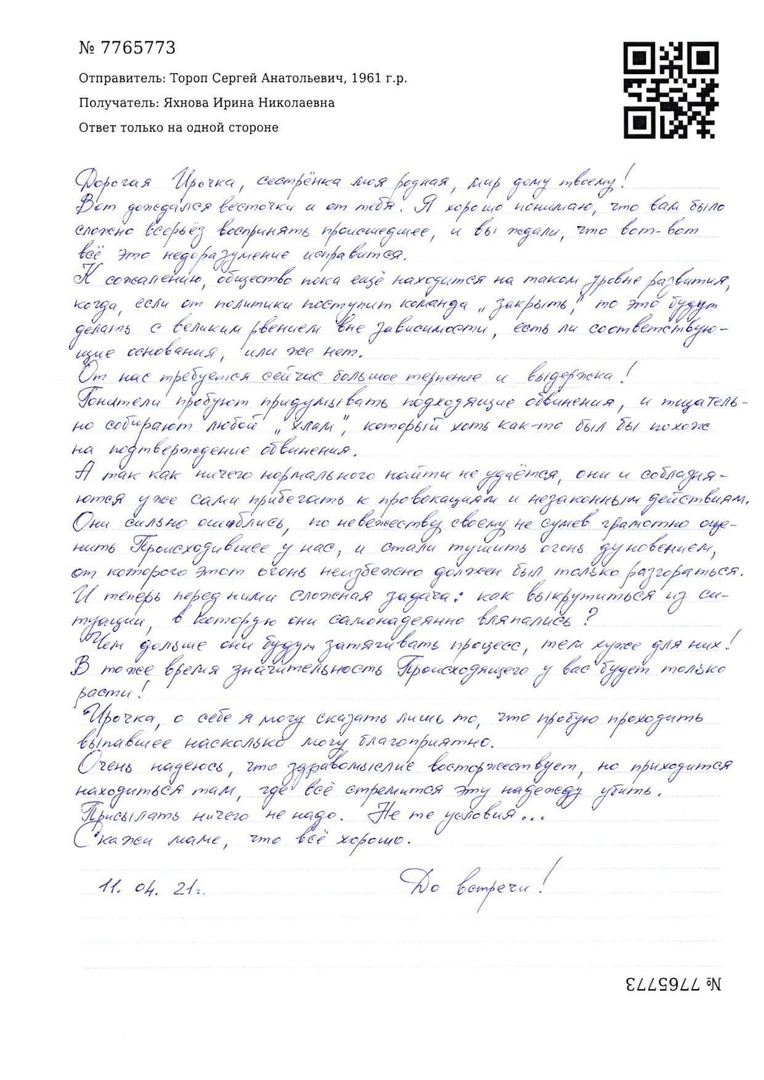 № 7765773
Отправитель: Тороп Сергей Анатольевич, 1961 г.р.
Получатель: Яхнова Ирина Николаевна
Ответ только на одной стороне
Дорогая Ирочка, сестрёнка моя родная, мир дому твоему!
Вот дождался весточки и от тебя. Я хорошо понимаю, что вам было
сложно всерьёз воспринять происшедшее, и вы ждали, что вот-вот
всё это недоразумение исправится.
К сожалению, общество пока ещё находится на таком уровне развития,
когда, если от политики поступит команда „закрыть," то это будут
делать с великим рвением вне зависимости, есть ли соответствую-
щие основания, или же нет.
От нас требуется сейчас большое терпение и выдержка!
Гонители пробуют придумывать подходящие обвинения, и тщатель-
но собирают любой „хлам", который хоть как-то был бы похож
на подтверждение обвинения.
А так как ничего нормального найти не удаётся, они и соблазня-
ются уже сами прибегать к провокациям и незаконным действиям.
Они сильно ошиблись, по невежеству своему не сумев грамотно оце-
нить Происходившее у нас, и стали тушить огонь дуновением,
от которого этот огонь неизбежно должен был только разгораться.
И теперь перед ними сложная задача: как выкрутиться из си-
туации, в которую они самонадеянно вляпались?
Чем дольше они будут затягивать процесс, тем хуже для них!
В тоже время значительность Происходящего у вас будет только
расти!
Ирочка, о себе я могу сказать лишь то, что пробую проходить
выпавшее насколько могу благоприятно.
Очень надеюсь, что здравомыслие восторжествует, но приходится
находиться там, где всё стремится эту надежду убить.
Присылать ничего не надо. Не те условия...
Скажи маме, что всё хорошо.
11. 04. 21г. До встречи!
№ 7765773